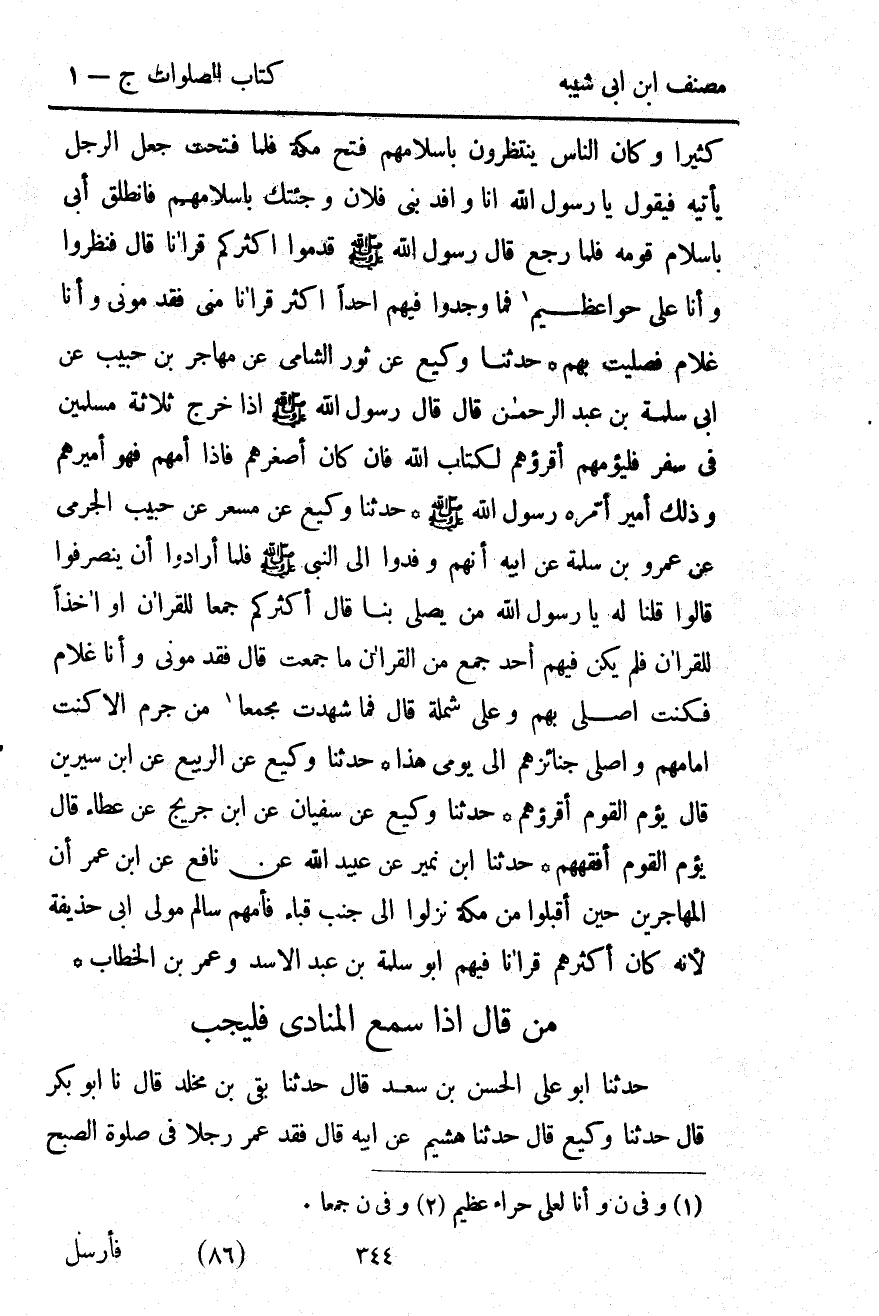 مصنف ابن ابى شيبه
كتاب الصلوات ج — ١
كثيرا و كان الناس ينتظرون باسلامهم فتح مكة فلما فتحت جعل الرجل
يأتيه فيقول يا رسول الله انا وافد بنى فلان و جئتك باسلامهم فانطلق أبى
باسلام قومه فلما رجع قال رسول الله ﷺ قدموا اكثركم قراٰنا قال فنظروا
و أنا على حواعظيم١ فما وجدوا فيهم احداً اكثر قراٰنا منى فقدمونى و أنا
غلام فصليت بهم * حدثنا وكيع عن ثور الشامى عن مهاجر بن حبيب عن
ابى سلمة بن عبد الرحمٰن قال قال رسول الله ﷺ اذا خرج ثلاثة مسلمين
فى سفر فليؤمهم أقرؤهم لكتاب الله فان كان أصغرهم فاذا أمهم فهو أميرهم
و ذلك أمير أمّره رسول الله ﷺ * حدثنا وكيع عن مسعر عن حبيب الجرمى
عن عمرو بن سلمة عن ابيه أنهم وفدوا الى النبى ﷺ فلما أرادوا أن ينصرفوا
قالوا قلنا له يا رسول الله من يصلى بنا قال أكثركم جمعا للقراٰن او اٰخذاً
للقراٰن فلم يكن فيهم أحد جمع من القراٰن ما جمعت قال فقدمونى و أنا غلام
فكنت اصلى بهم و على شملة قال فما شهدت مجمعا١ من جرم الا كنت
امامهم و اصلى جنائزهم الى يومى هذا * حدثنا وكيع عن الربيع عن ابن سيرين
قال يؤم القوم أقرؤهم * حدثنا وكيع عن سفيان عن ابن جريج عن عطاء قال
يؤم القوم أفقههم * حدثنا ابن نمير عن عبيد الله عن نافع عن ابن عمر أن
المهاجرين حين أقبلوا من مكة نزلوا الى جنب قباء فأمهم سالم مولى ابى حذيفة
لأنه كان أكثرهم قراٰنا فيهم ابو سلمة بن عبد الاسد و عمر بن الخطاب *
من قال اذا سمع المنادى فليجب
حدثنا ابو على الحسن بن سعد قال حدثنا بقى بن مخلد قال نا ابو بكر
قال حدثنا وكيع قال حدثنا هشيم عن ابيه قال فقد عمر رجلا فى صلوة الصبح
(١) و فى ن و أنا لعلى حراء عظيم (٢) و فى ن جمعا .
٣٤٤ (٨٦) فأرسل